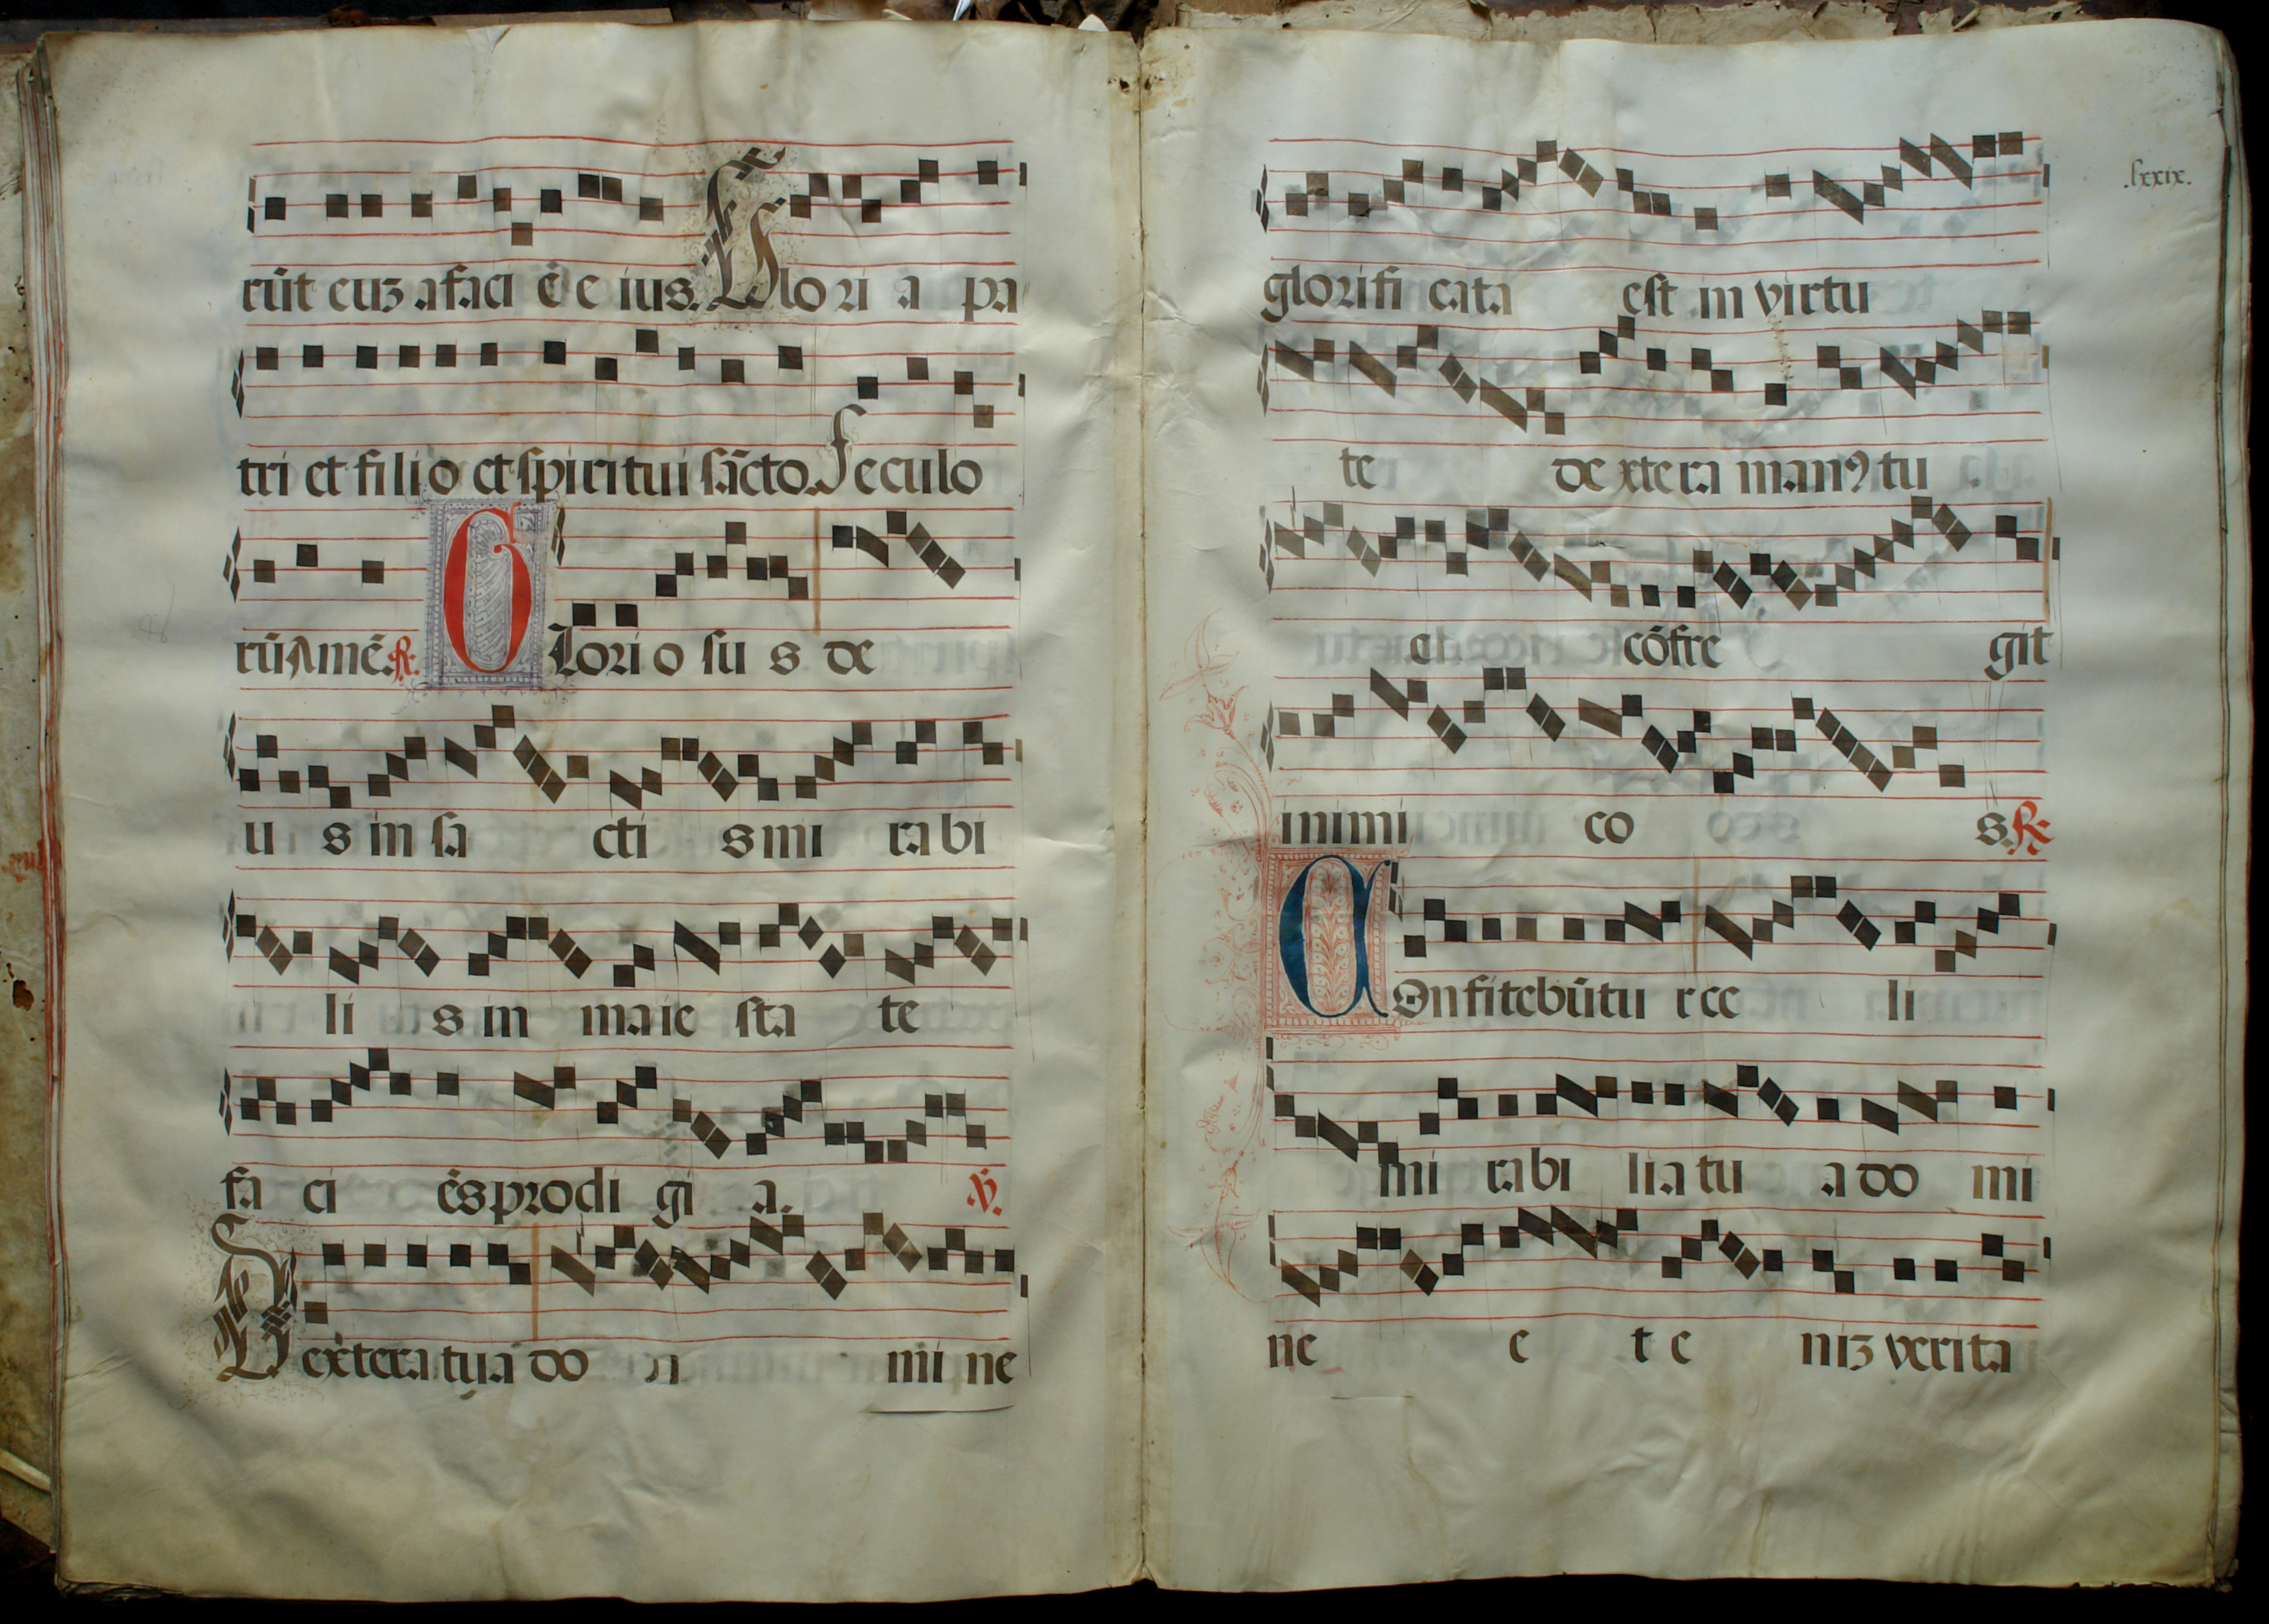 rũt cuʒ a faci ē e ius. Glo ri a pa
tri et fi li o et spiri tui sācto. Seculo
rũ Amē. R. Glori o su s de
u s in sa cti s mi ra bi
li s in ma ie sta te
fa ci ēs prodi gi a. V.
Dextera tua do mi ne
.lxxix.
glorifi cata est in virtu
te dextera manꝰ tu
a cōfre git
inimi co s. R.
Confitebūtu r ce li
mi rabi lia tu a do mi
ne e t e niʒ verita